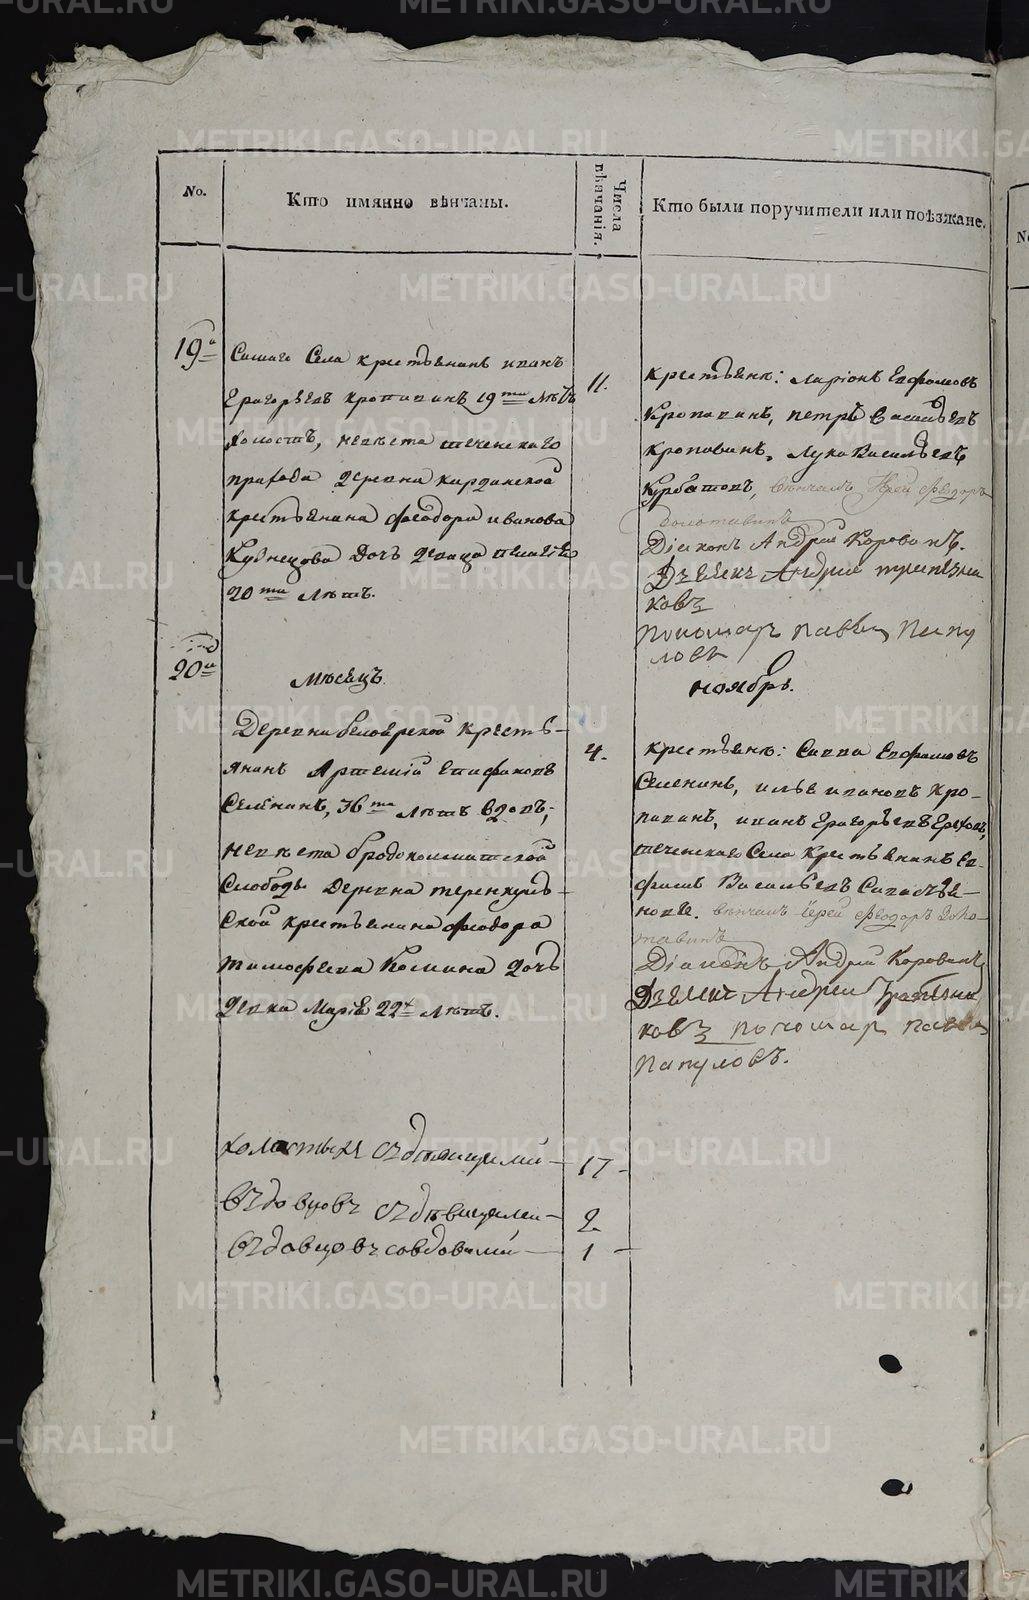 No.
Кто имянно вѣнчаны.
Числа вѣнчанія.
Кто были поручители или поѣзжане.
19й
Самаго Села крестьянинъ иванъ
Григорьевъ кропанинъ 19ти лѣтъ
холостъ, невѣста теченскаго
прихода деревни кирдинской
крестьянина феодора иванова
Кузнецова дочь девица пелагѣя
20ти лѣтъ.
11.
крестьяне: ларіонъ Евфимовъ
кропанинъ, петръ васильевъ
кропанинъ, лука васильевъ
Курбатовъ, вѣнчалъ Іерей феодоръ
Золотавинъ
Діаконъ Андрей Коровинъ.
Дьячекъ Андрей трапезни
ковъ
пономарь павелъ папу
ловъ
20й
мѣсецъ
ноябрь.
Деревни белоярской кресть-
янинъ Артемій Епифановъ
Селенинъ, 36ти лѣтъ вдовъ,
невѣста бродокалматской
Слободы деревни теренкуль-
ской крестьянина феодора
тимофеева Комина дочь
девка Марія 22х лѣтъ.
4.
крестьяне: Савва Евфимовъ
Селенинъ, илья ивановъ кро-
панинъ, иванъ Григорьевъ Ереховъ,
теченскаго Села крестьянинъ Ев-
фимъ Васильевъ
вѣнчалъ Іерей феодоръ Золо-
тавинъ
Діаконъ Андрей Коровинъ
Дьячекъ Андрей трапезни
ковъ пономарь павелъ
папуловъ.
холостыхъ съ девицами — 17 -
въдовцовъ съ девицами — 2
въдовцовъ совдовами — 1 -
METRIKI.GASO-URAL.RU